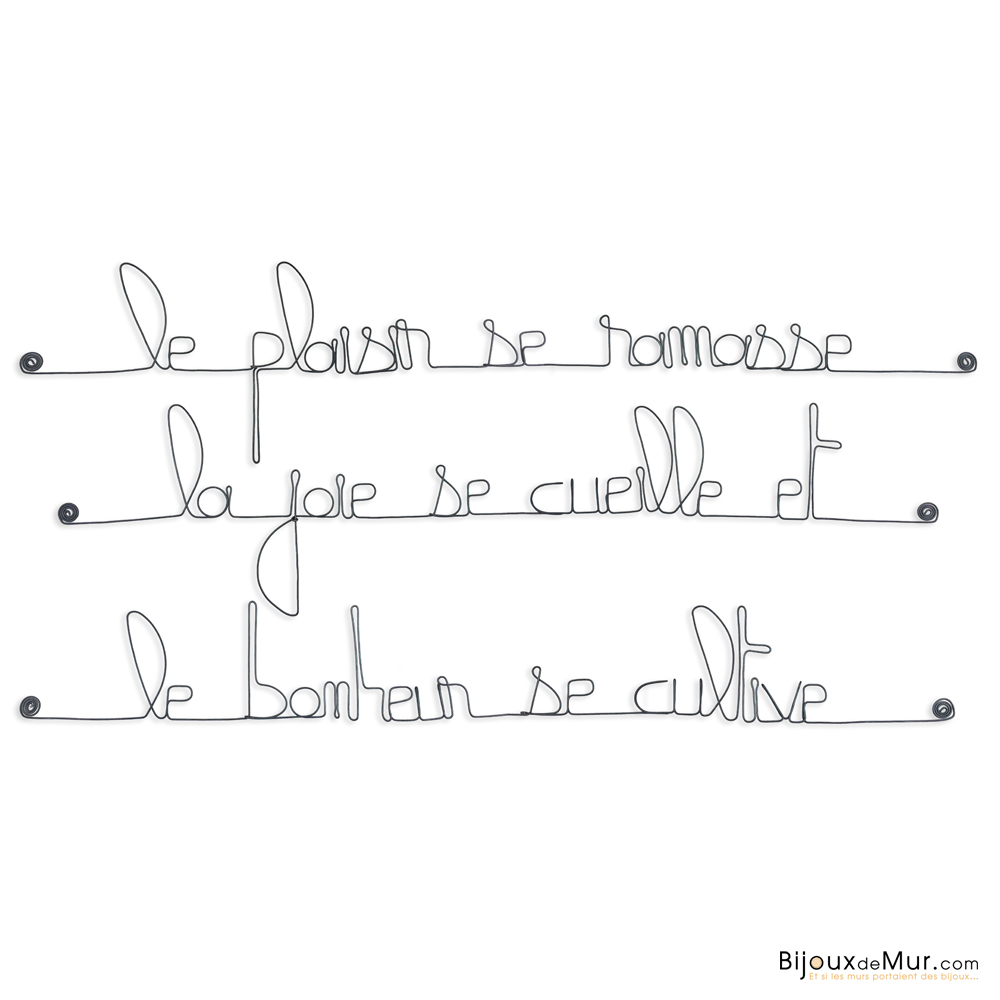 le plaisir se ramasse
la joie se cueille et
le bonheur se cultive
BijouxdeMur.com
Et si les murs portaient des bijoux...